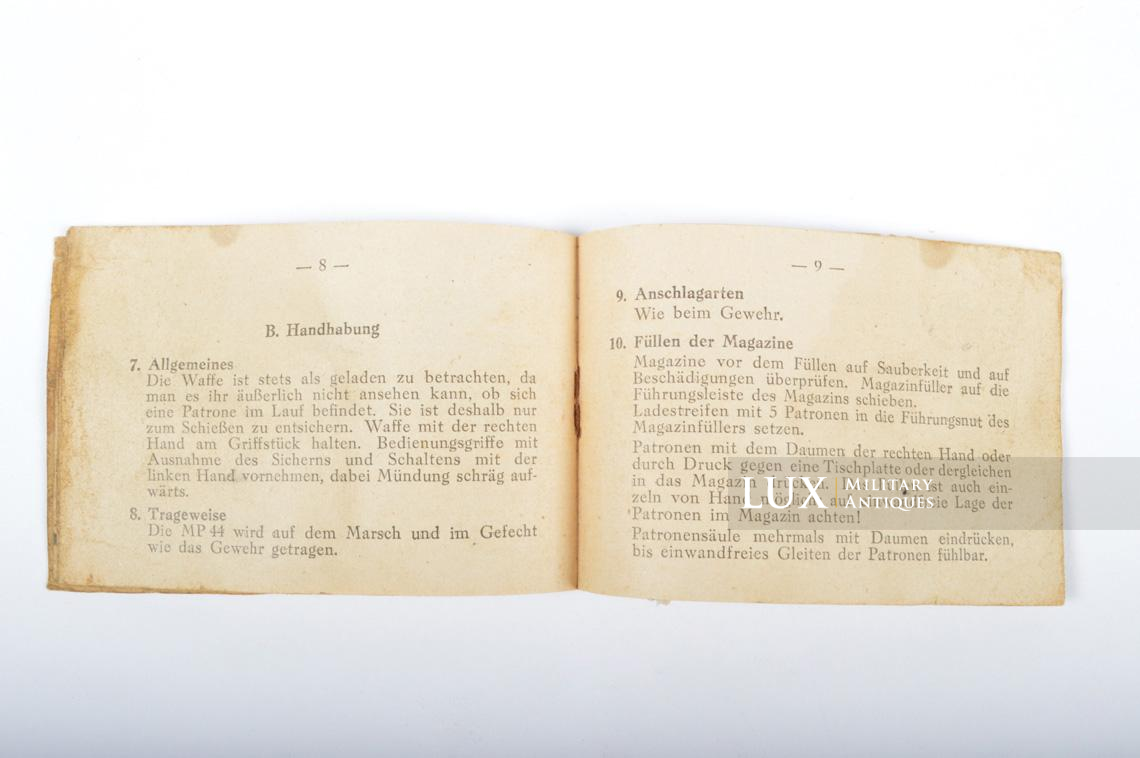 — 8 —
B. Handhabung
7. Allgemeines
Die Waffe ist stets als geladen zu betrachten, da
man es ihr äußerlich nicht ansehen kann, ob sich
eine Patrone im Lauf befindet. Sie ist deshalb nur
zum Schießen zu entsichern. Waffe mit der rechten
Hand am Griffstück halten. Bedienungsgriffe mit
Ausnahme des Sicherns und Schaltens mit der
linken Hand vornehmen, dabei Mündung schräg auf-
wärts.
8. Trageweise
Die MP 44 wird auf dem Marsch und im Gefecht
wie das Gewehr getragen.
— 9 —
9. Anschlagarten
Wie beim Gewehr.
10. Füllen der Magazine
Magazine vor dem Füllen auf Sauberkeit und auf
Beschädigungen überprüfen. Magazinfüller auf die
Führungsleiste des Magazins schieben.
Ladestreifen mit 5 Patronen in die Führungsnut des
Magazinfüllers setzen.
Patronen mit dem Daumen der rechten Hand oder
durch Druck gegen eine Tischplatte oder dergleichen
in das Magazin drücken. ist auch ein-
zeln von Hand möglich, die Lage der
Patronen im Magazin achten!
Patronensäule mehrmals mit Daumen eindrücken,
bis einwandfreies Gleiten der Patronen fühlbar.
LUX MILITARY
ANTIQUES